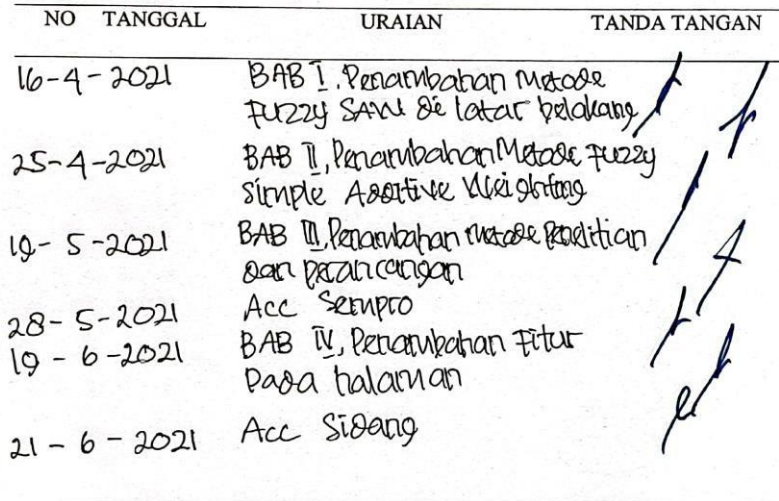 NO TANGGAL URAIAN TANDA TANGAN
16-4-2021 BAB I. Penambahan Metode
Fuzzy SAW di latar belakang
25-4-2021 BAB II, Penambahan Metode Fuzzy
Simple Additive Weighting
19-5-2021 BAB III, Penambahan metode penelitian
dan perancangan
28-5-2021 Acc Sempro
19-6-2021 BAB IV, Penambahan Fitur
Pada halaman
21-6-2021 Acc Sidang